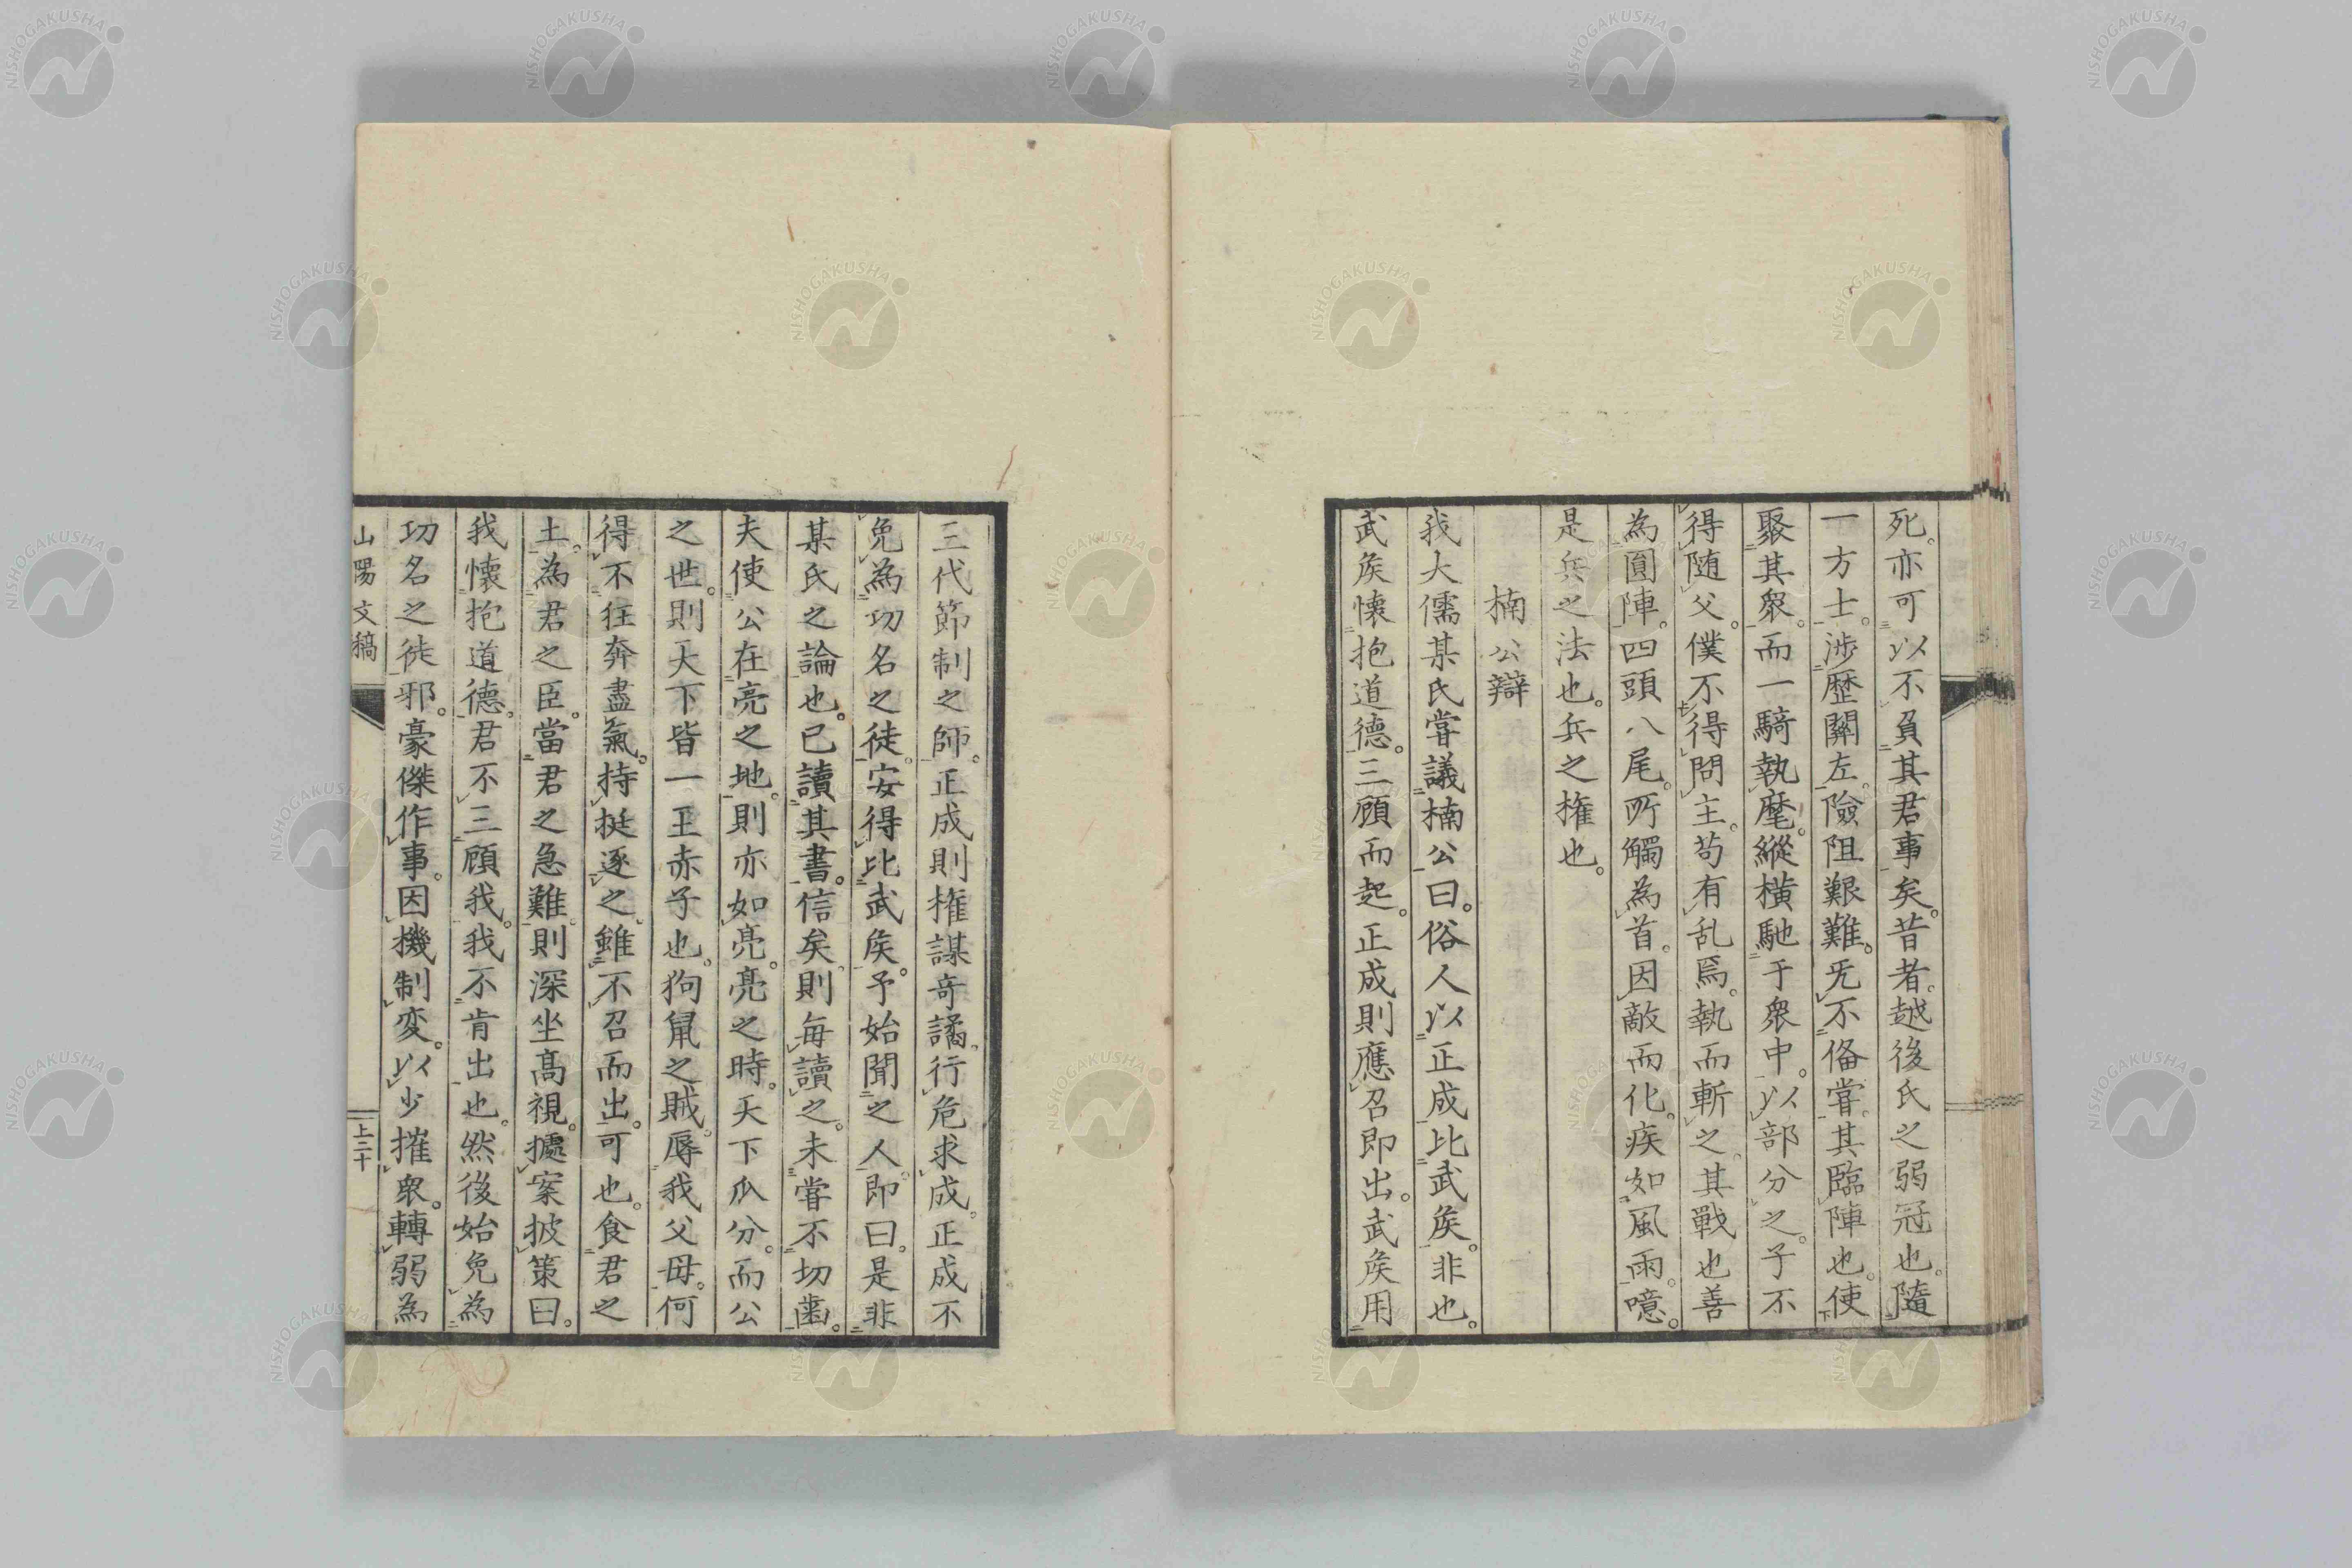 死。亦可以不負其君事矣。昔者。越後氏之弱冠也。隨
一方士。渉歴關左。險阻艱難。旡不俻甞。其臨陣也。使
聚其衆。而一騎執麾。縱橫馳于衆中。以部分之。子不
得随父。僕不得問主。苟有乱焉。執而斬之。其戰也善
為圓陣。四頭八尾。所觸為首。因敵而化。疾如風雨。噫。
是兵之法也。兵之権也。
楠公辯
我大儒某氏甞議楠公曰。俗人以正成比武矦。非也。
武矦懐抱道德。三顧而起。正成則應召即出。武矦用
三代節制之師。正成則権謀奇譎。行危求成。正成不
免為功名之徒。安得比武矦。予始聞之人。即曰。是非
某氏之論也。已讀其書。信矣。則毎讀之。未甞不切齒。
夫使公在亮之地。則亦如亮。亮之時。天下瓜分。而公
之世。則天下皆一王赤子也。狗鼠之賊。辱我父母。何
得不往奔盡氣。持挺逐之。雖不召而出。可也。食君之
土。為君之臣。當君之急難。則深坐髙視。攄案披策曰。
我懐抱道德。君不三顧我。我不肯出也。然後始免為
功名之徒邪。豪傑作事。因機制変。以少摧衆。轉弱為
山陽文稿
上二十
NISHOGAKUSHA